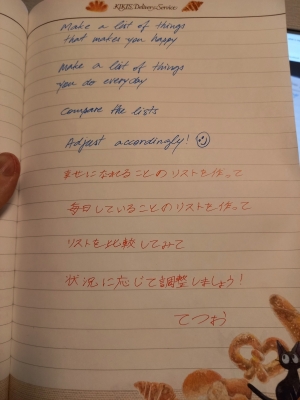 KIKI'S Delivery Service
Make a list of things
that makes you happy
Make a list of things
you do everyday
Compare the lists
Adjust accordingly!
幸せになれることのリストを作って
毎日していることのリストを作って
リストを比較してみて
状況に応じて調整しましょう!
てつお